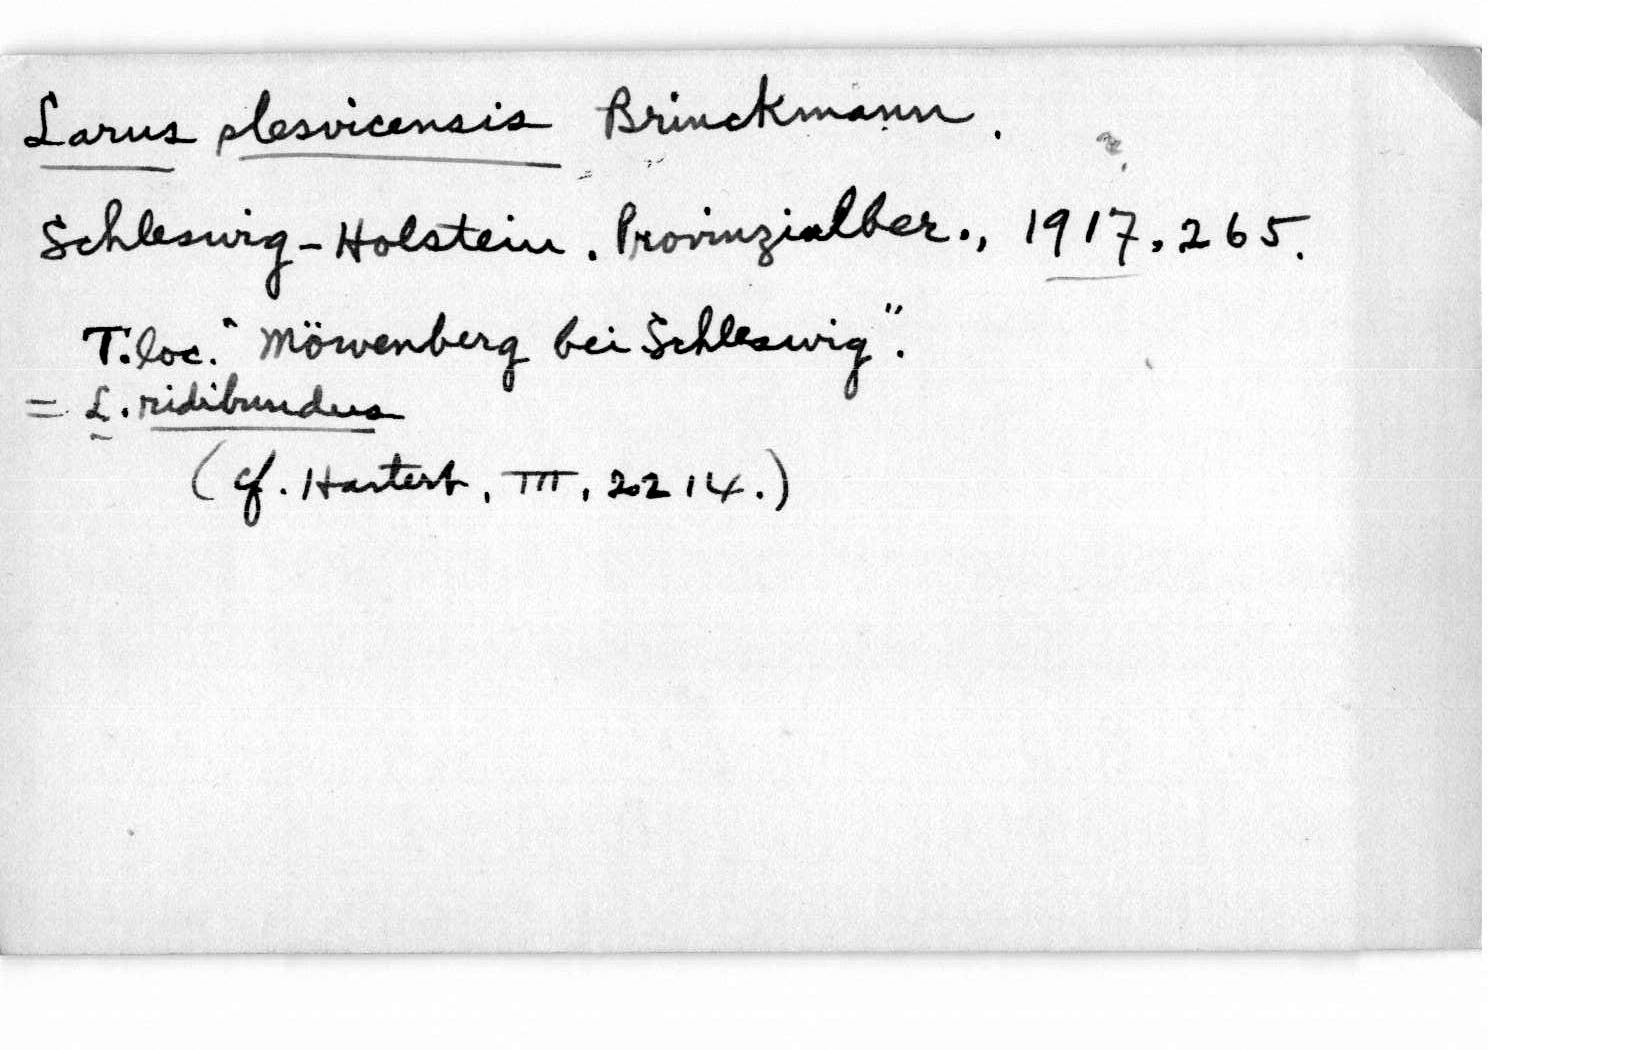 Larus slesvicensis Brinckmann.
Schleswig-Holstein. Provinzialber., 1917, 265.
T. loc. "Möwenberg bei Schleswig".
= L. ridibundus
(cf. Hartert, III, 2214.)